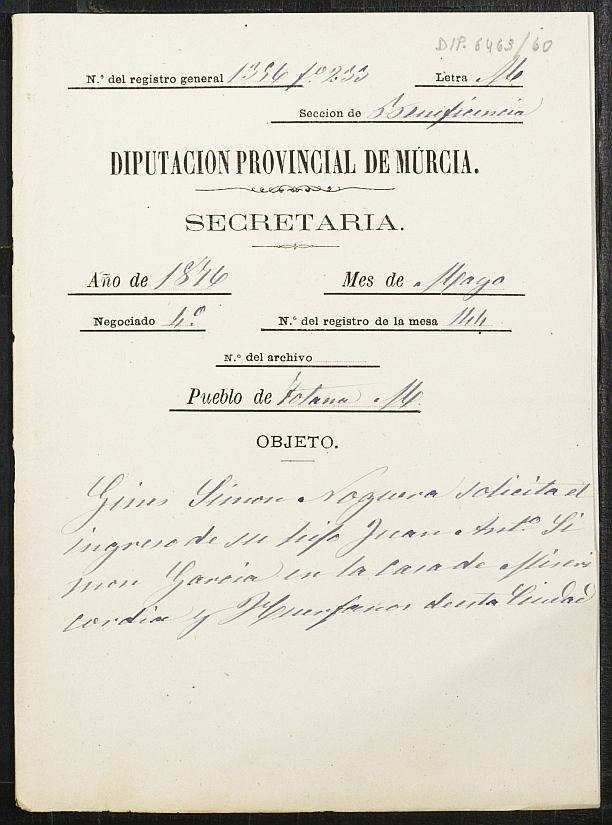 DIP. 6469/60
N.º del registro general 1356 fº 233 Letra M
Seccion de Beneficencia
DIPUTACION PROVINCIAL DE MÚRCIA.
SECRETARIA.
Año de 1876 Mes de Mayo
Negociado 4.º N.º del registro de la mesa 144
N.º del archivo
Pueblo de Totana M.
OBJETO.
Gines Simon Noguera solicita el
ingreso de su hijo Juan Antº Si
mon Garcia en la casa de Miseri
cordia y Huerfanos desta Ciudad